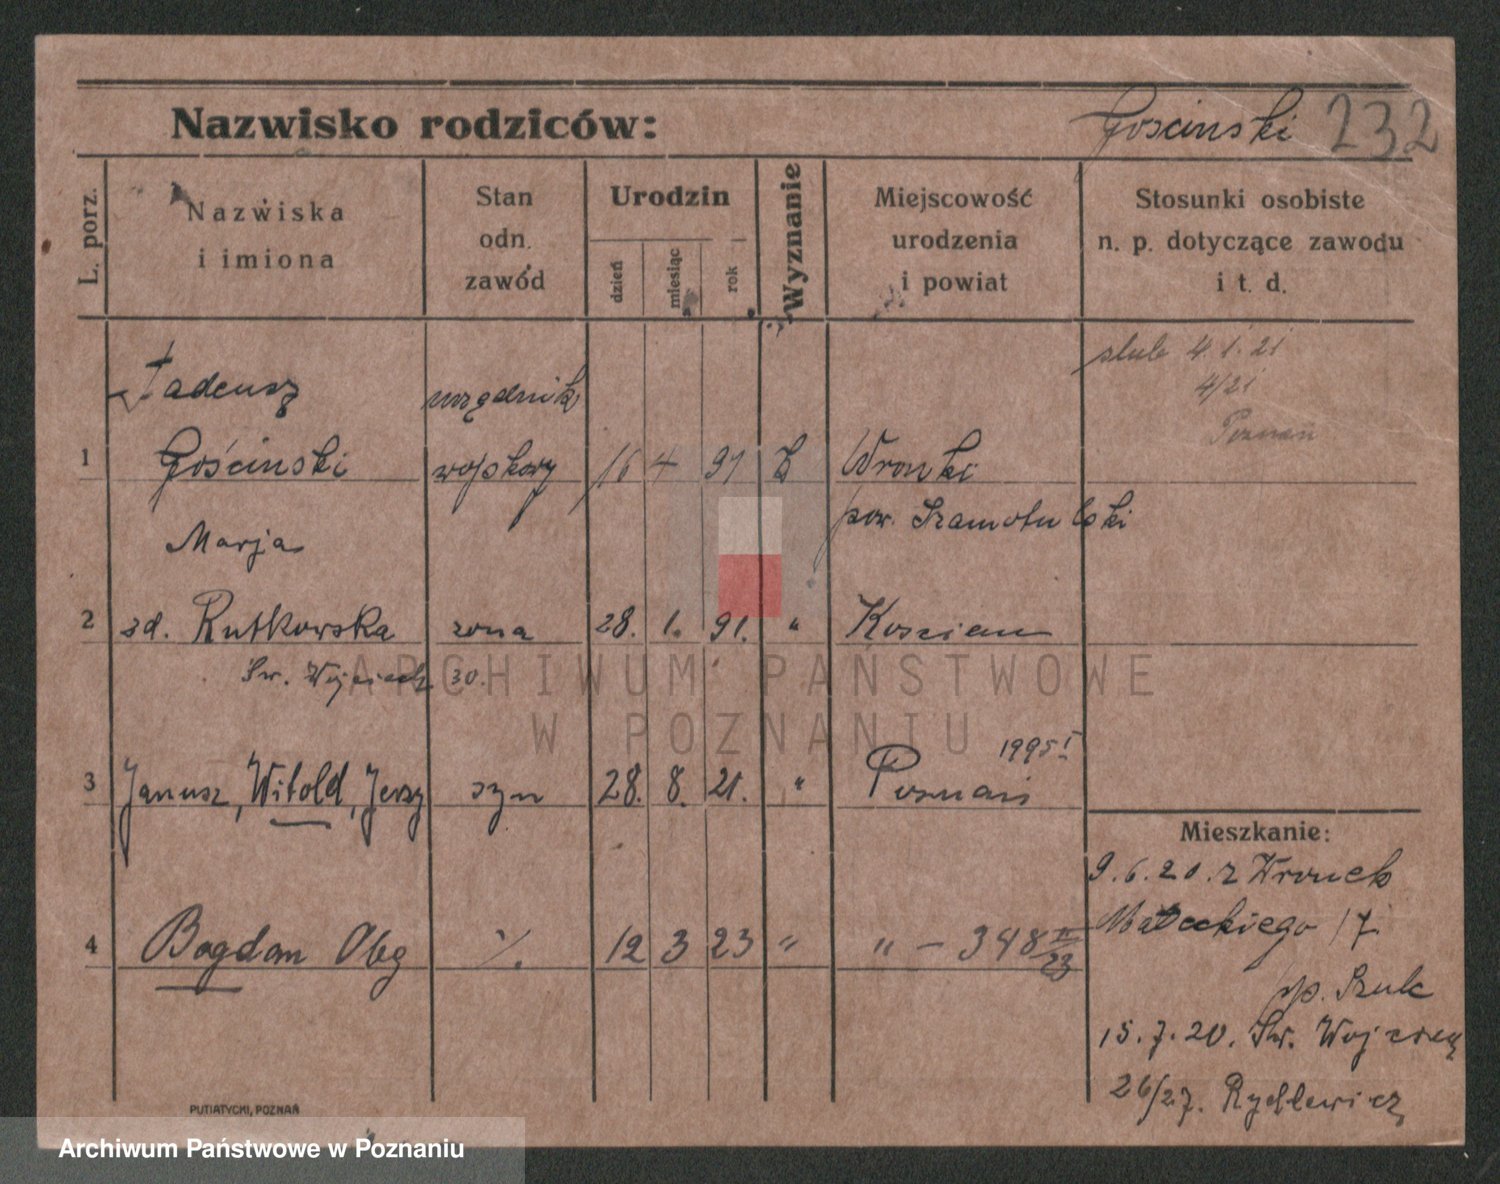 Nazwisko rodziców: Gościnski 232
L. porz.
Nazwiska
i imiona
Stan
odn.
zawód
Urodzin
dzień
miesiąc
rok
Wyznanie
Miejscowość
urodzenia
i powiat
Stosunki osobiste
n. p. dotyczące zawodu
i t. d.
slub 4.1.21
4/21
Poznań
Tadeusz urzędnik
1 Gościnski wojskowy 16 4 91 k Wronki
pow. Szamotulski
Marja
2 zd. Rutkowska zona 28. 1. 91. " Koscian
Sw. Wojciech 30.
1995 I
3 Janusz, Witold, Jerzy syn 28. 8. 21. " Poznań
4 Bogdan Oleg ٪. 12 3 23 " " - 348 II/23
Mieszkanie:
9.6.20. z Wronek
Małeckiego 17
Szulc
15.7.20. Sw. Wojciech
26/27. Rychlewicz
PUTIATYCKI, POZNAŃ
ARCHIWUM PAŃSTWOWE
W POZNANIU
Archiwum Państwowe w Poznaniu